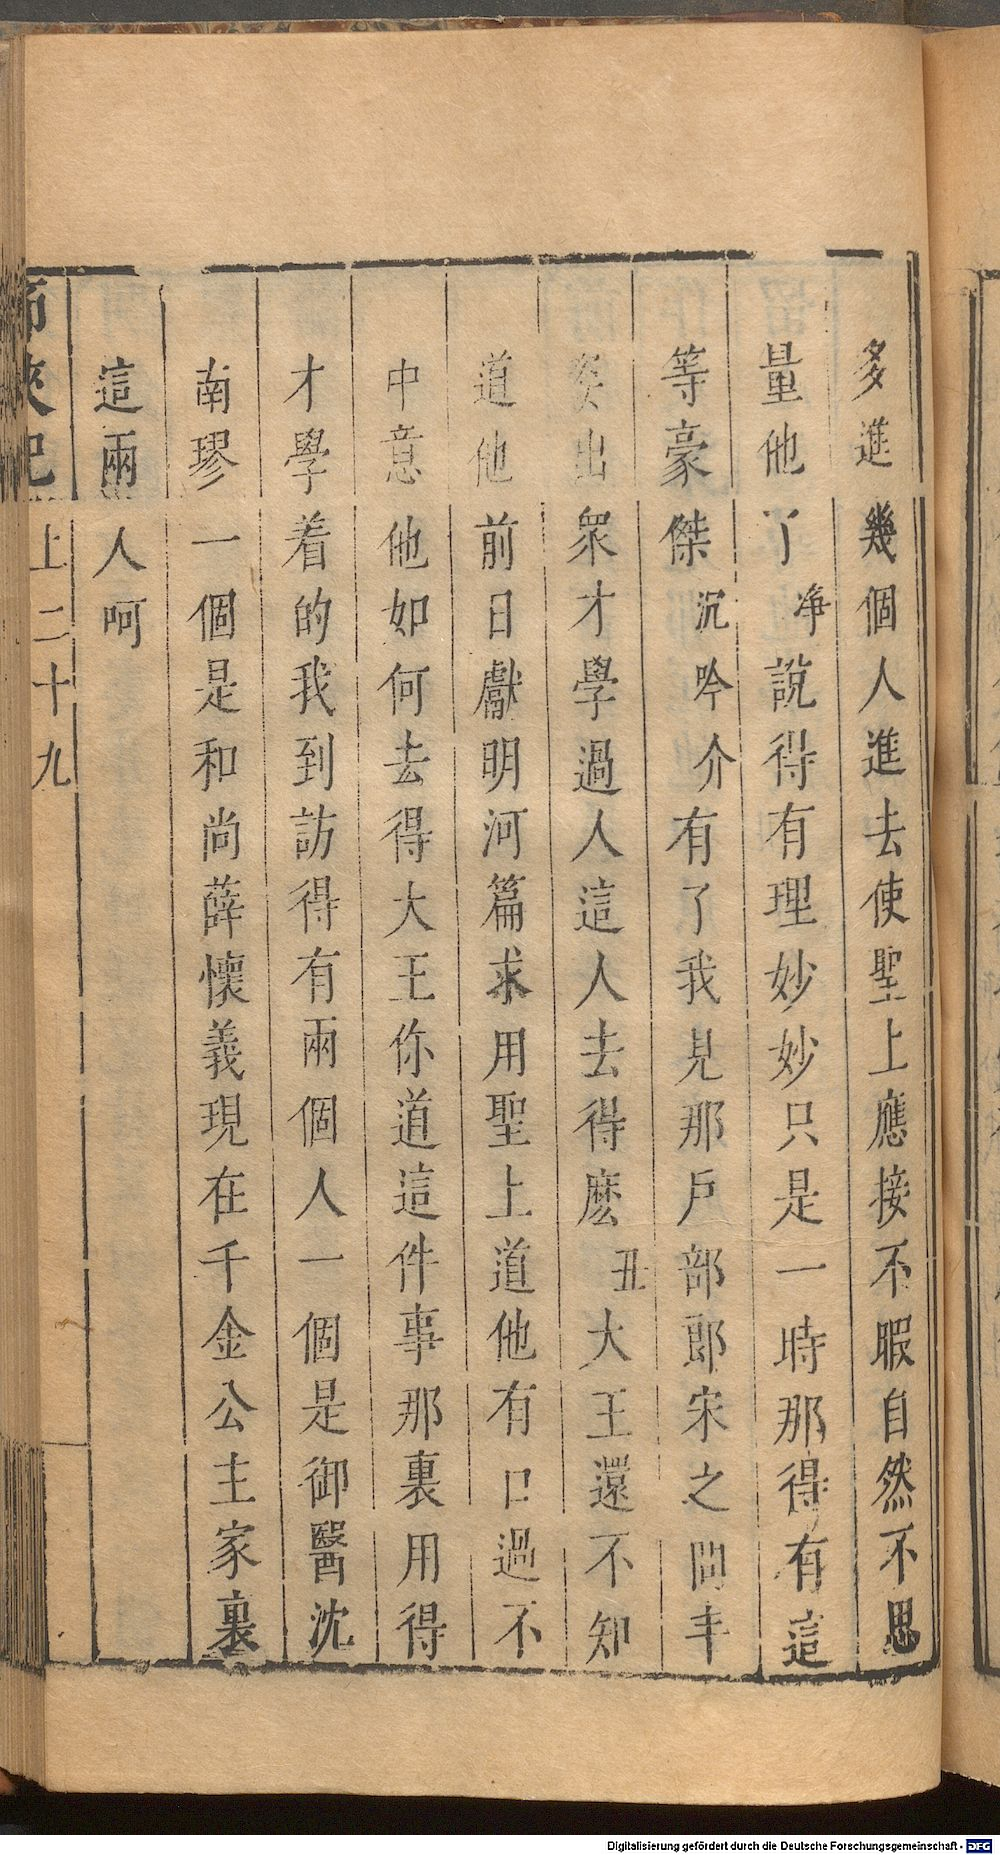 多進幾個人進去使聖上應接不暇自然不思
量他了淨說得有理妙妙只是一時那得有這
等豪傑沉吟介有了我見那戶部郎宋之問丰
姿出衆才學過人這人去得麽丑大王還不知
道他前日獻明河篇求用聖上道他有口過不
中意他如何去得大王你道這件事那裏用得
才學着的我到訪得有兩個人一個是御醫沈
南璆一個是和尚薛懷義現在千金公主家裏
這兩人呵
俠記 上二十九
Digitalisierung gefördert durch die Deutsche Forschungsgemeinschaft - DFG